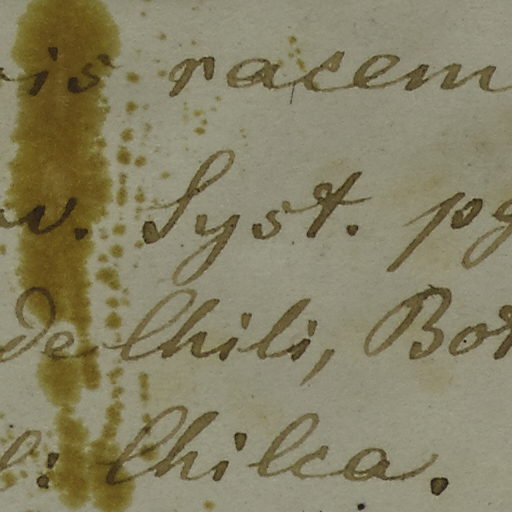 is racem
av. Syst. pg
de Chili, Bot
l: Chilca.